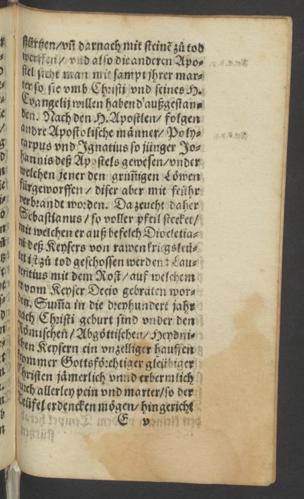 stürtzen/ vñ darnach mit steinē zů tod
werffen/ vnd also die anderen Apo-
stel sicht man mit sampt jhrer mar-
ter so sie vmb Christi vnd seines H.
Evangelij willen habend außgestan-
den. Nach den H. Apostlen/ folgen
andre Apostolische männer/ Poly-
carpus vnd Ignatius so jünger Jo-
hannis deß Apostels gewesen/ vnder
welchen jener den grim̃igen Löwen
fürgeworffen/ diser aber mit feühr
verbrandt worden. Da zeucht daher
Sebastianus/ so voller pfeil stecket/
mit welchen er auß befelch Diocletia-
ni deß Keysers von rawen kriegsleü-
ten ist zů tod geschossen werden: Lau-
rentius mit dem Rost/ auf welchem
er vom Keyser Decio gebraten wor-
den. Sum̃a in die dreyhundert jahr
nach Christi geburt sind vnder den
Römischen/ Abgöttischen/ Heydni-
schen Keysern ein vnzelliger hauffen
frommer Gottsförchtiger gleübiger
Christen jämerlich vnnd erbermlich
durch allerley pein vnd marter/ so der
Teüfel erdencken mögen/ hingericht
E v